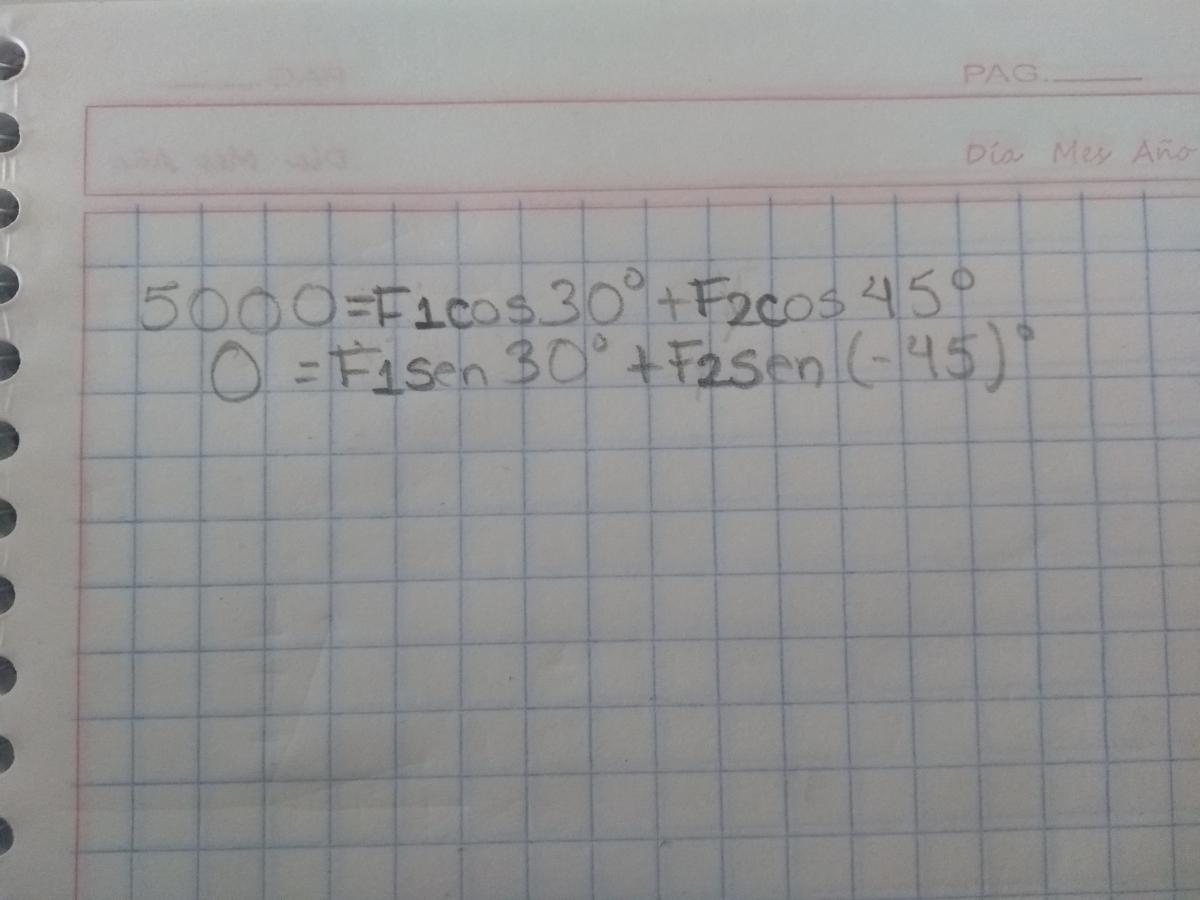 PAG.
Día Mes Año
5000=F1cos30°+F2cos45°
0=F1sen30°+F2sen(-45)°